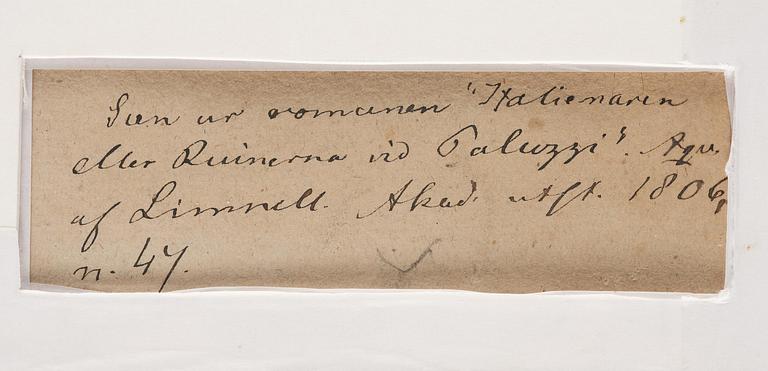 Scen ur romanen "Italienaren
eller Ruinerna vid Paluzzi". Aqv.
af Limnell. Akad. utst. 1806,
n. 47.